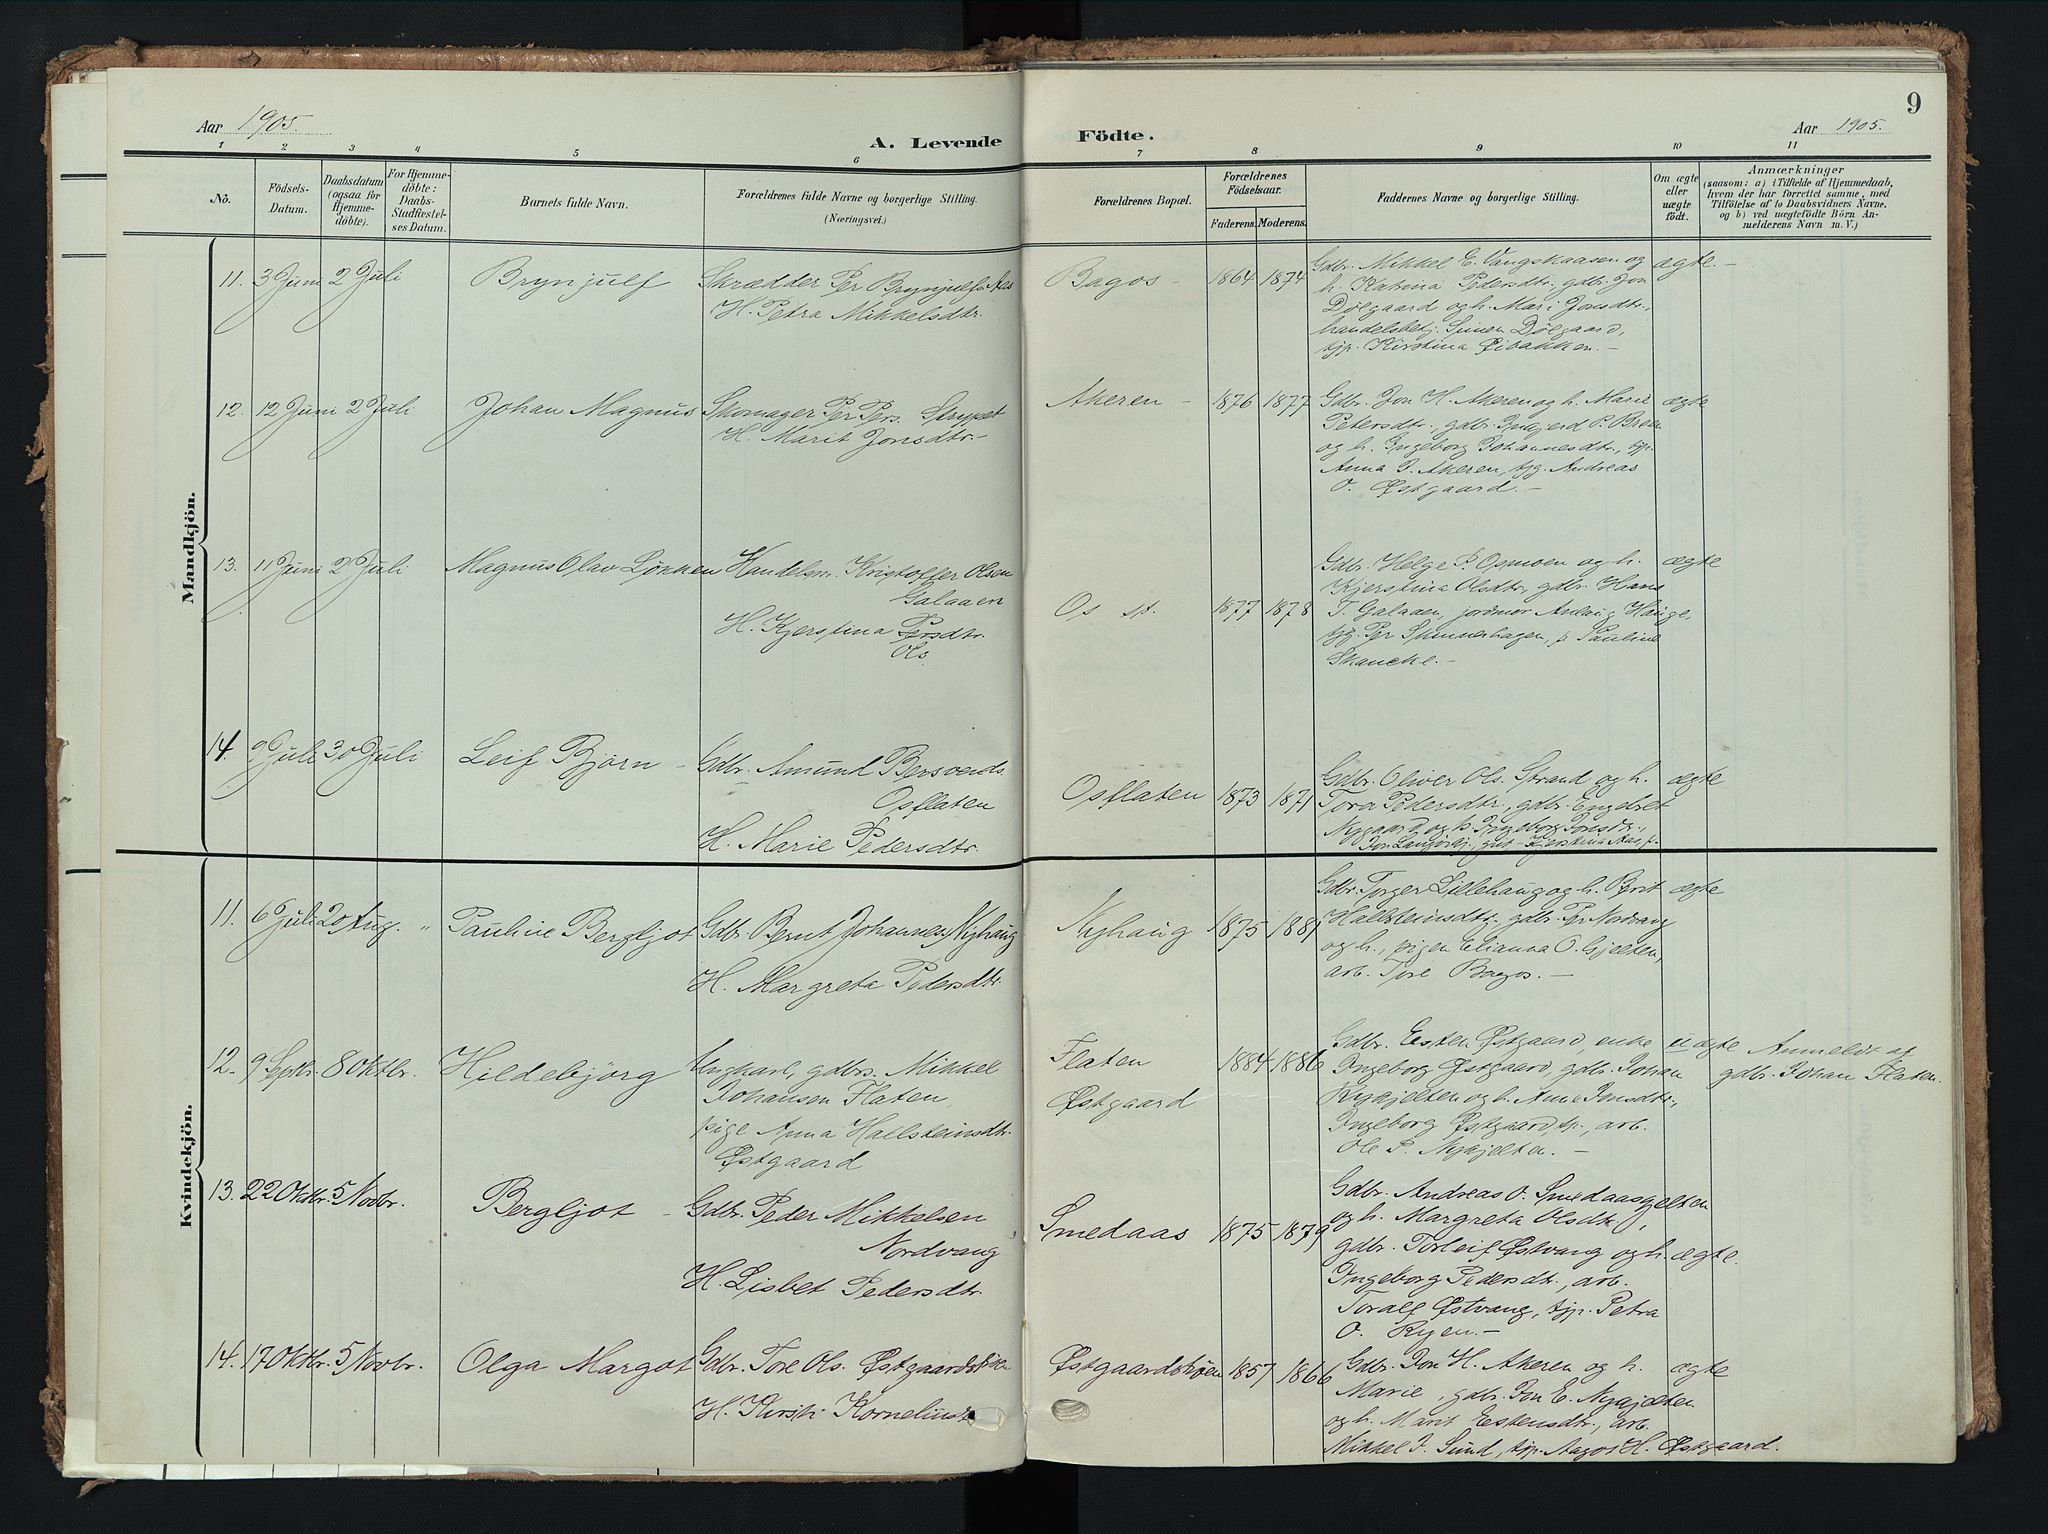 9
Aar 1905.
A. Levende Födte.
Aar 1905.
1 2 3 4 5 6 7 8 9 10 11
No.
Födsels-Datum.
Daabsdatum (ogsaa for Hjemmedöbte).
For Hjemmedöbte: Daabs-Stadfæstelses Datum.
Barnets fulde Navn.
Forældrenes fulde Navne og borgerlige Stilling.
(Næringsvei.)
Forældrenes Bopæl.
Forældrenes Födselsaar.
Faderens. Moderens.
Faddernes Navne og borgerlige Stilling.
Om ægte eller uægte födt.
Anmærkninger
(saasom: a) i Tilfælde af Hjemmedaab, hvem der har forrettet samme, med Tilföielse af to Daabsvidners Navne, og b) ved uægtefödte Börn Anmelderens Navn m. V.)
Mandkjön.
11. 3 Juni 2 Juli Brynjulf Skrædder Per Brynjulfs. Aas
H. Petra Mikkelsdtr.
Bagos - 1864 1874
Gdbr. Mikkel E. Vangskaasen og ægte.-
h. Katrina Pedersdtr., gdbr. Jon
Dølgaard og h. Mari Jonsdtr.,
handelsbetj. Simen Dølgaard,
tjp. Kirstina Øibakken.-
12. 12 Juni 2 Juli Johan Magnus Skomager Per Pers. Strypet
H. Marit Jonsdtr.-
Akeren - 1876 1877
Gdbr. Jon H. Akeren og h. Marie ægte
Petersdtr., gdbr. Ingjerd P. Breen
og h. Ingeborg Johannesdtr., tjp.
Anna J. Akeren, tjg. Andreas
O. Østgaard.-
13. 11 Juni 2 Juli Magnus Olav Løkken Handelsm. Kristoffer Olsen
Galaaen
H. Kjerstina Persdtr.
Ols.
Os st. 1877 1878
Gdbr. Helge P. Osmoen og h. ægte
Kjerstina Olsdtr., gdbr. Hans
T. Galaaen, jordmor Anlaug Hauge,
tjg. Per Sammenhagen, p. Pauline
Skancke.-
14. 9 Juli 30 Juli Leif Bjørn - Gdbr. Amund Bersvends.
Osflaten
H. Marie Pedersdtr.
Osflaten 1873 1871
Gdbr. Oliver Ols. Strand og h. ægte
Tora Pedersdtr., gdbr. Engebret
Nygaard og h. Ingeborg Jonsdtr.,
Jon Langødg., gut - Kjerstina Aas, p.
Kvindekjön.
11. 6 Juli 20 Aug. " Pauline Bergljot Gdbr. Bernt Johannes. Nyhaug
H. Margreta Pedersdtr.
Nyhaug 1875 1881
Gdbr. Torger Lillehaug og h. Brit ægte
Hallsteinsdtr., gdbr. Per Nordvang
og h., pigen Elianna O. Gjelten,
arb. Tore Bagos.-
12. 9 Septbr. 8 Oktbr. Hildebjörg Ungkarl, gdbrs. Mikkel
Johansen Flaten,
pige Anna Hallsteinsdtr.
Østgaard
Flaten 1884 1886
Østgaard
Gdbr. Esten Østgaard, enke uægte Anmeldt af
Ingeborg Østgaard, gdbr. Johan gdbr. Johan Flaten.
Nykjelten og h. Anne Jonsdtr.,
Ingeborg Østgaard, tp., arb.
Ole P. Nykjelten.-
13. 22 Oktbr. 5 Novbr. Bergljot - Gdbr. Peder Mikkelsen
Nordvang
H. Lisbet Pedersdtr.
Smedaas 1875 1879
Gdbr. Andreas O. Smedaasgjelten
og h. Margreta Olsdtr.,
gdbr. Torleif Østvang og h. ægte.
Ingeborg Pedersdtr., arb.
Toralf Østvang, tjp. Petra
O. Ryen.-
14. 17 Oktbr. 5 Novbr. Olga Margot Gdbr. Tore Ols. Østgaardstrøa
H. Kirsti Korneliusdtr
Østgaardstrøen 1857 1866
Gdbr. Jon H. Akeren og h. ægte
Marie, gdbr. Jon E. Nykjelten
og h. Marit Estensdtr., arb.
Mikkel J. Sund, tjp. Aagot H. Østgaard.